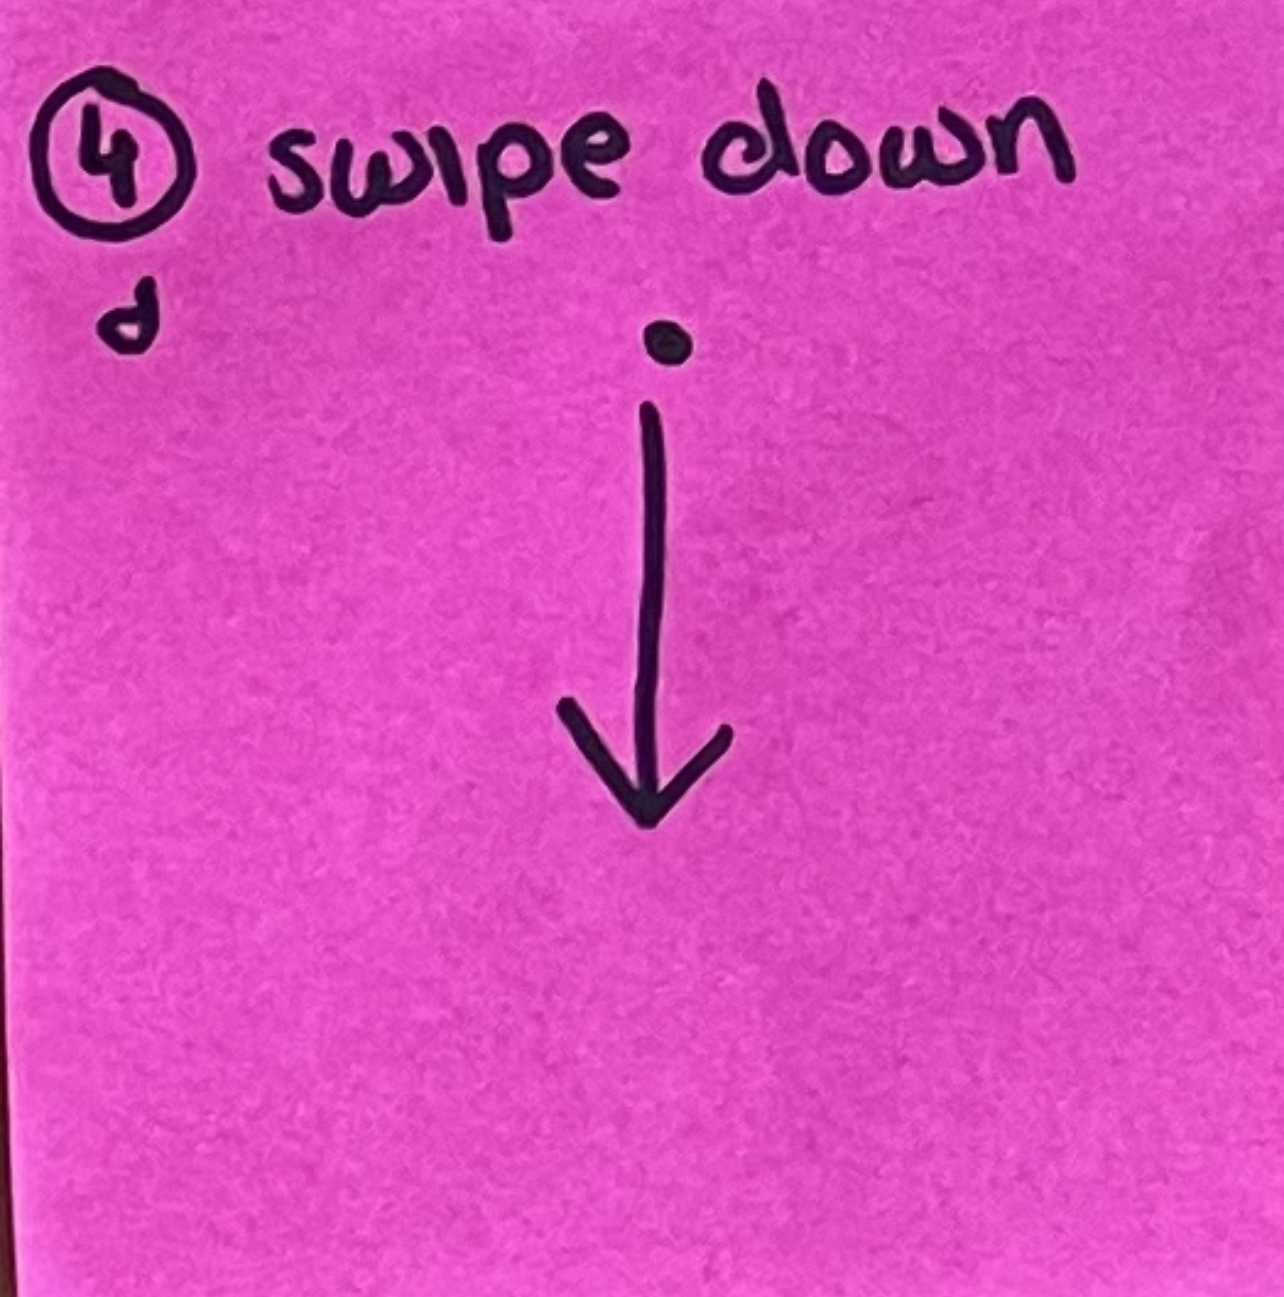 4 swipe down
d